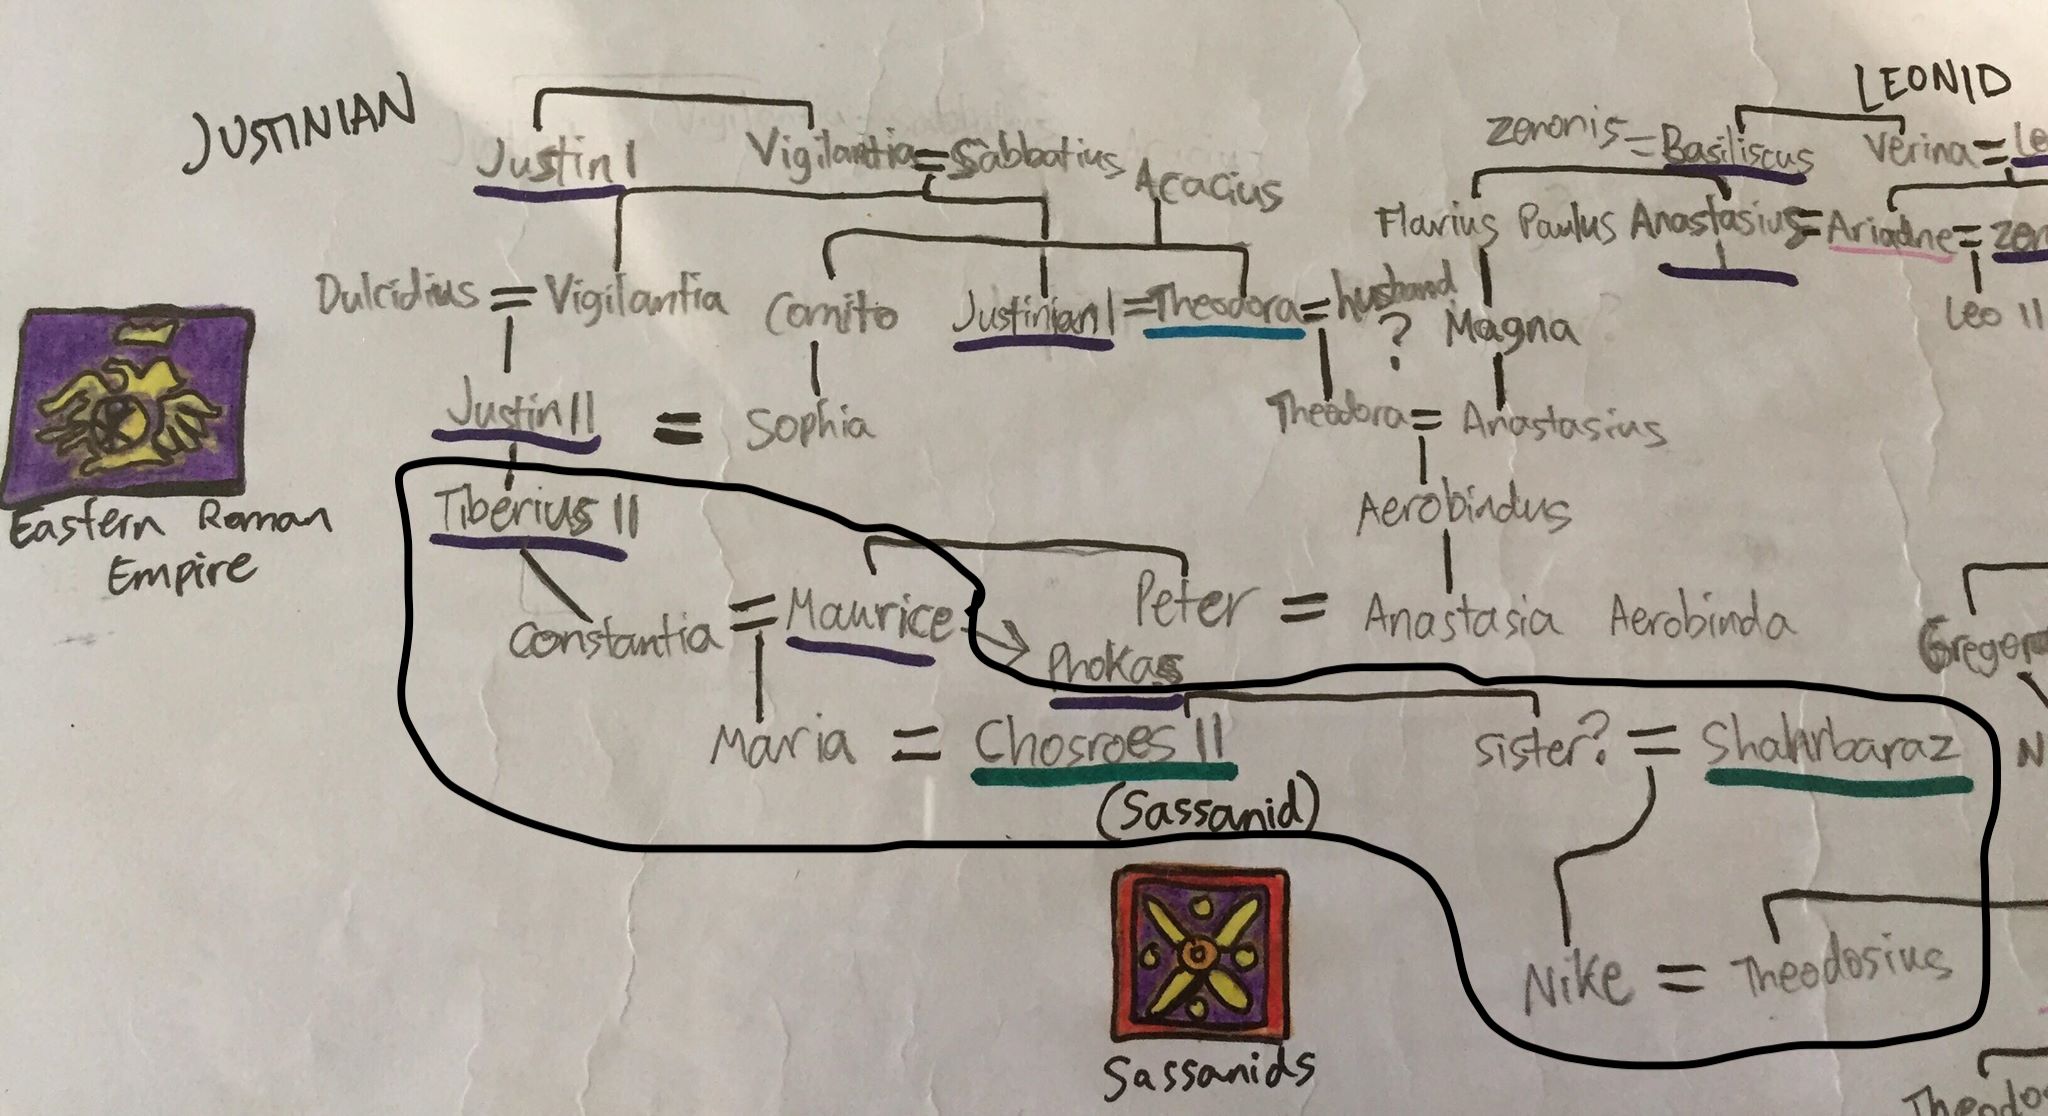 JUSTINIAN
LEONID
Justin I Vigilantia = Sabbatius Acacius zenonis = Basiliscus Verina =
Flavius Paulus Anastasius = Ariadne =
Dulcidius = Vigilantia Comito Justinian I = Theodora = husband ? Magna Leo II
Justin II = Sophia Theodora = Anastasius
Tiberius II Aerobindus
Eastern Roman
Empire
Constantia = Maurice → Phokas Peter = Anastasia Aerobinda
Maria = Chosroes II sister? = Shahrbaraz
(Sassanid)
Nike = Theodosius
Sassanids